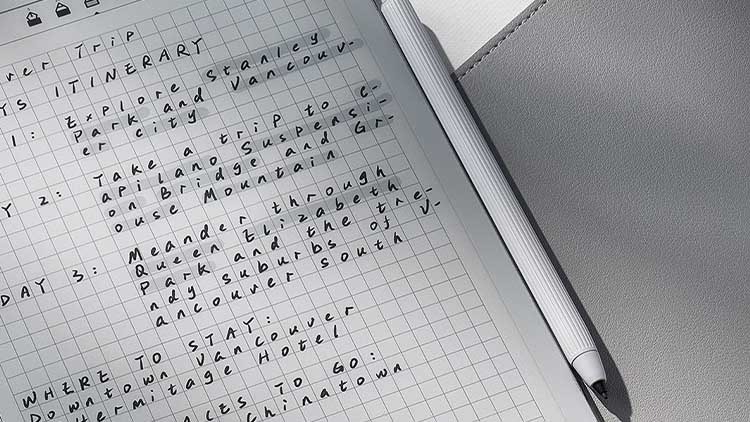 ver Trip
YS ITINERARY
1: Explore Stanley
Park and Vancouv-
er city
Y 2: Take a trip to C-
apilano Suspensi-
on Bridge and Gr-
ouse Mountain
DAY 3: Meander through
Queen Elizabeth
Park and the tre-
ndy suburbs of V-
ancouver south
WHERE TO STAY:
Downtown Vancouver
Hermitage Hotel
ACES TO GO:
Chinatown